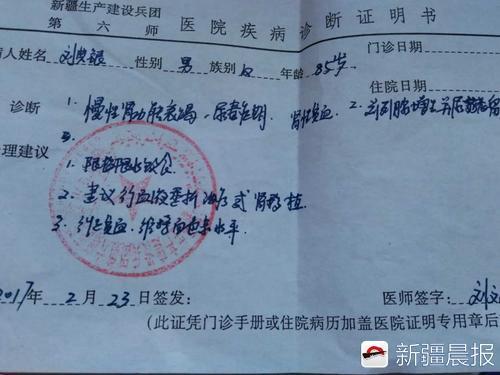 新疆生产建设兵团
第六师 医院疾病诊断证明书
病人姓名 刘贵银 性别 男 族别 汉 年龄 85岁 门诊日期
住院日期
诊断 1. 慢性肾功能衰竭、尿毒症期 肾性贫血 2. 前列腺增生并尿潴留
3.
处理建议
1. 限盐限水饮食
2. 建议行血液透析治疗或肾移植
3. 纠正贫血、维持蛋白水平
2017年 2 月 23 日签发: 医师签字: 刘文
(此证凭门诊手册或住院病历加盖医院证明专用章后
新疆晨报